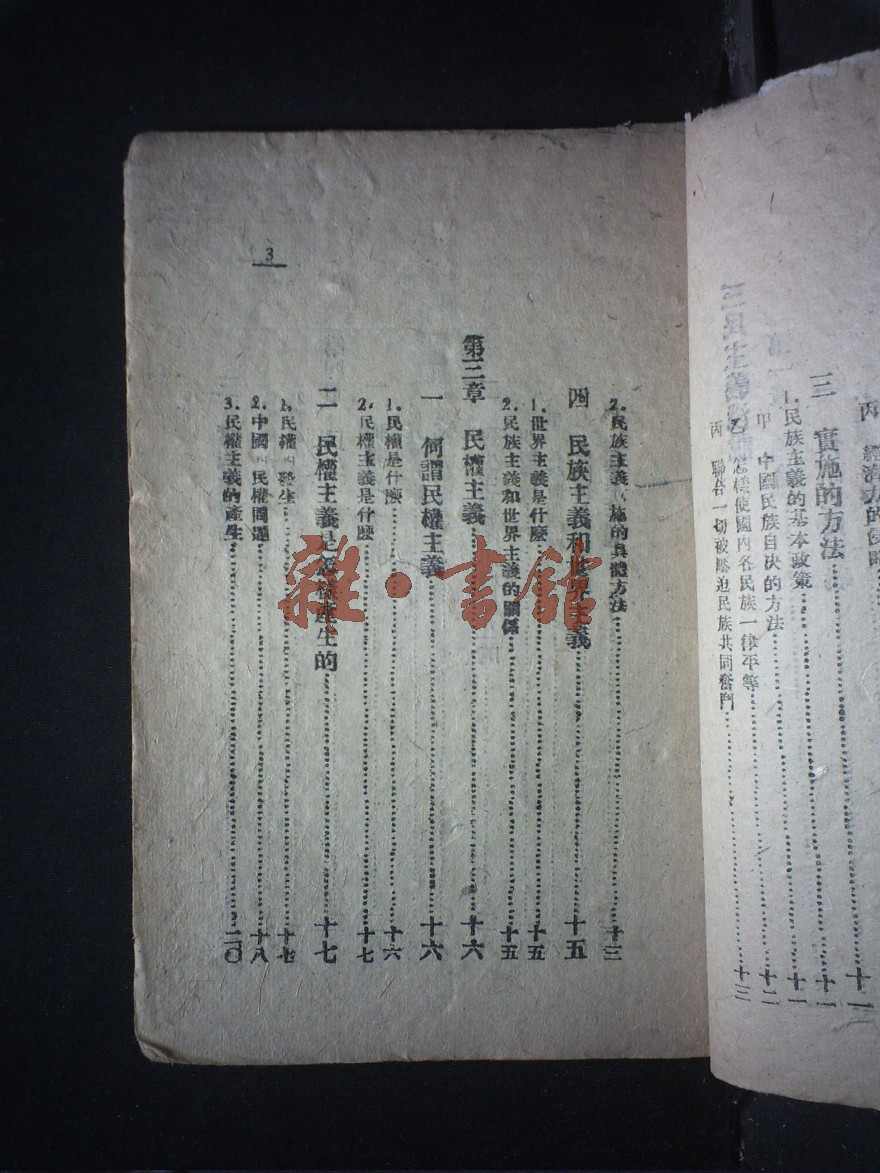 丙 經濟力的侵略
三 實施的方法……十一
1.民族主義的基本政策……十一
甲 中國民族自決的方法……十二
乙 怎樣使國內各民族一律平等
丙 聯合一切被壓迫民族共同奮鬥……十三
3
2.民族主義 施的具體方法……十三
四 民族主義和世界主義……十五
1.世界主義是什麼……十五
2.民族主義和世界主義的關係……十五
第三章 民權主義……十六
一 何謂民權主義……十六
1.民權是什麼……十六
2.民權主義是什麼……十七
二 民權主義是怎樣產生的……十七
1.民權 發生……十七
2.中國 民權問題……十八
3.民權主義的產生……二〇
雜·書館